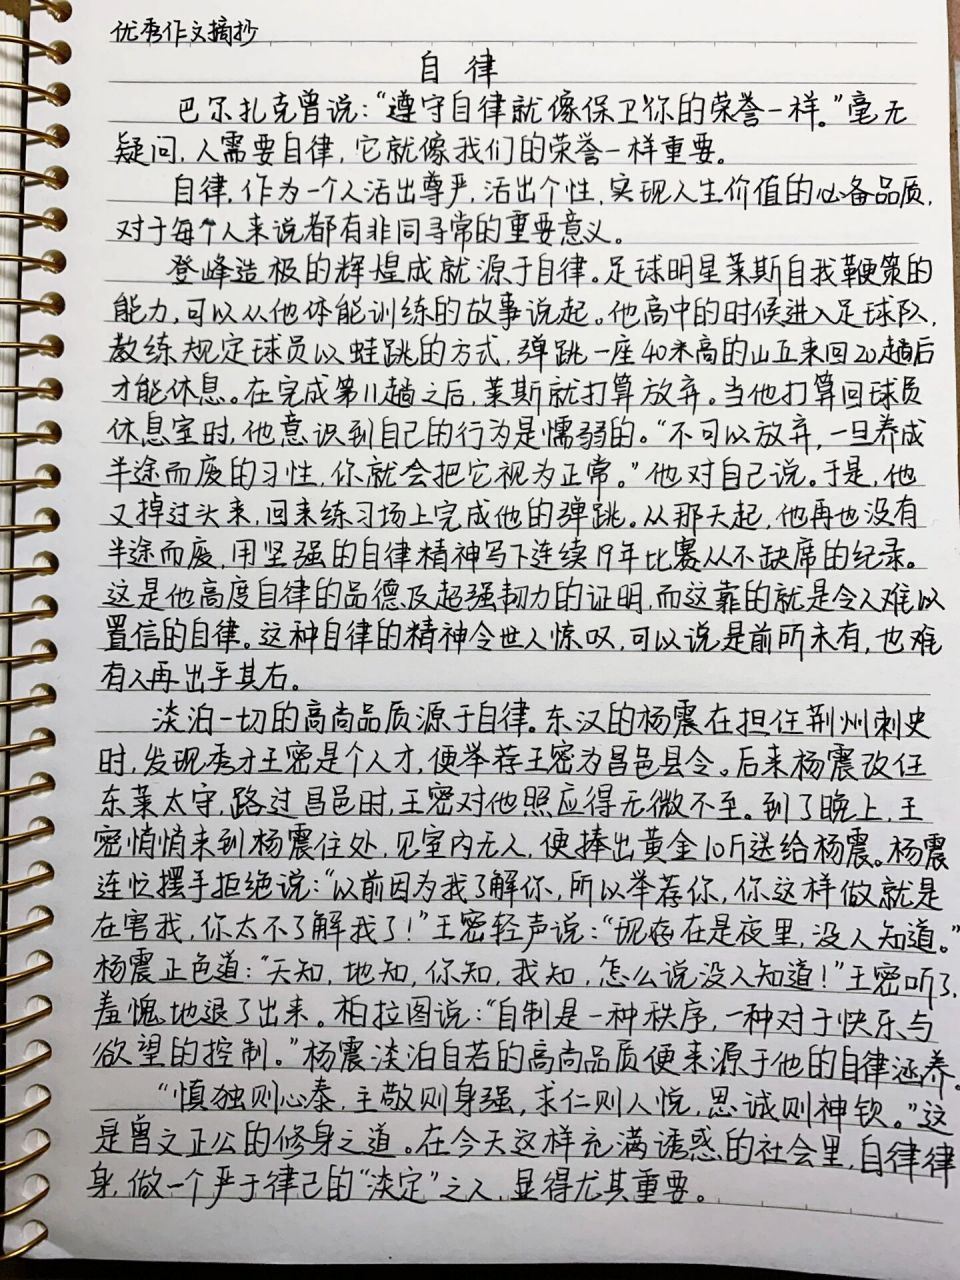 优秀作文摘抄
自律
巴尔扎克曾说：“遵守自律就像保卫你的荣誉一样。”毫无
疑问，人需要自律，它就像我们的荣誉一样重要。
自律，作为一个人活出尊严，活出个性，实现人生价值的必备品质，
对于每个人来说都有非同寻常的重要意义。
登峰造极的辉煌成就源于自律。足球明星莱斯自我鞭策的
能力，可以从他体能训练的故事说起。他高中的时候进入足球队，
教练规定球员以蛙跳的方式，弹跳一座40米高的山丘来回20趟后
才能休息。在完成第11趟之后，莱斯就打算放弃。当他打算回球员
休息室时，他意识到自己的行为是懦弱的。“不可以放弃，一旦养成
半途而废的习性，你就会把它视为正常。”他对自己说。于是，他
又掉过头来，回来练习场上完成他的弹跳。从那天起，他再也没有
半途而废，用坚强的自律精神写下连续19年比赛从不缺席的纪录。
这是他高度自律的品德及超强韧力的证明，而这靠的就是令人难以
置信的自律。这种自律的精神令世人惊叹，可以说是前所未有，也难
有人再出乎其右。
淡泊一切的高尚品质源于自律。东汉的杨震在担任荆州刺史
时，发现秀才王密是个人才，便举荐王密为昌邑县令。后来杨震改任
东莱太守，路过昌邑时，王密对他照应得无微不至。到了晚上，王
密悄悄来到杨震住处，见室内无人，便捧出黄金10斤送给杨震。杨震
连忙摆手拒绝说：“以前因为我了解你，所以举荐你，你这样做就是
在害我，你太不了解我了！”王密轻声说：“现在是夜里，没人知道。”
杨震正色道：“天知，地知，你知，我知，怎么说没人知道！”王密听了，
羞愧地退了出来。柏拉图说：“自制是一种秩序，一种对于快乐与
欲望的控制。”杨震淡泊自若的高尚品质便来源于他的自律涵养。
“慎独则心泰，主敬则身强，求仁则人悦，思诚则神钦。”这
是曾文正公的修身之道。在今天这样充满诱惑的社会里，自律律
身，做一个严于律己的“淡定”之人，显得尤其重要。